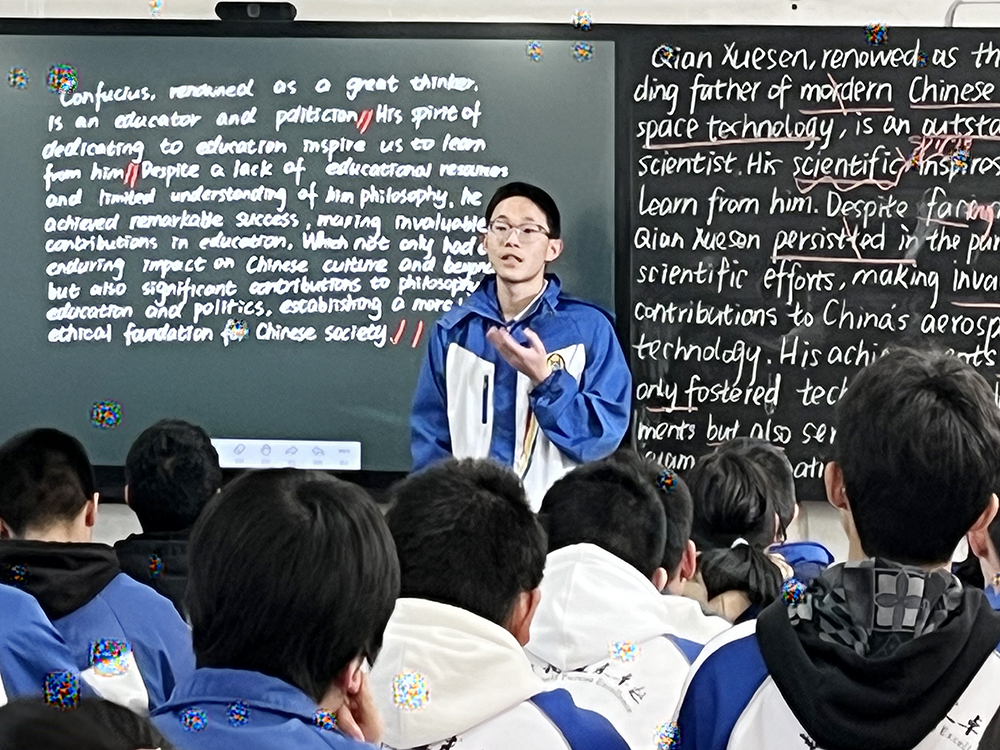 Confucius, renowned as a great thinker.
is an educator and politician // His spirit of
dedicating to education inspire us to learn
from him // Despite a lack of educational resources
and limited understanding of him philosophy, he
achieved remarkable success, making invaluable
contributions in education. Which not only had
enduring impact on Chinese culture and beyond
but also significant contributions to philosophy
education and politics, establishing a more
ethical foundation for Chinese society //
Qian Xuesen, renowned as th
ding father of mordern Chinese
space technology, is an outsta
scientist. His scientific inspires
learn from him. Despite facing
Qian Xueson persistted in the pur
scientific efforts, making inva
contributions to China's aerosp
technology. His achi ents
only fostered tech
ments but also ser